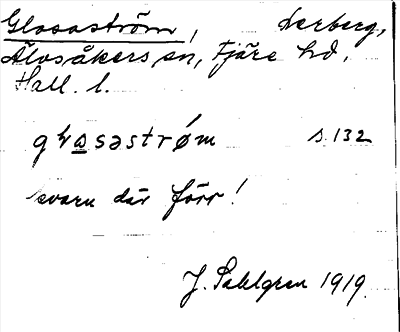 Glosaström, Lerberg,
Älvsåkers sn, Fjäre hd,
Hall. l.
glwsəstrøm s. 132
kvarn där förr!
J. Sahlgren 1919.